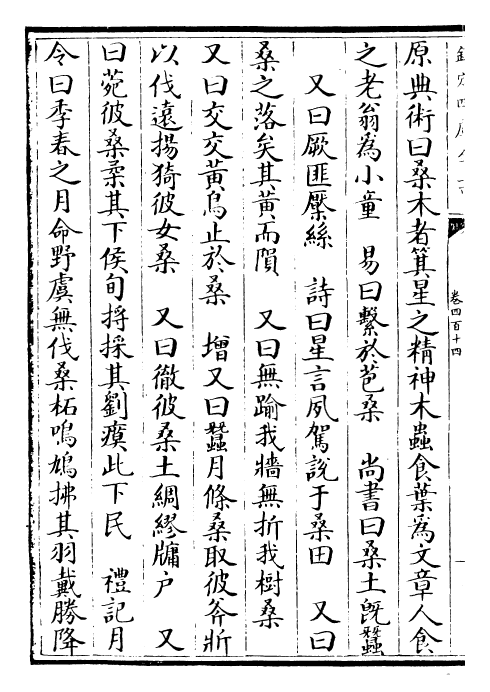 欽定四庫全書
卷四百十四
原典術曰桑木者箕星之精神木蟲食葉爲文章人食
之老翁為小童　易曰繫於苞桑　尚書曰桑土旣蠶
又曰厥匪檿絲　詩曰星言夙駕說于桑田　又曰
桑之落矣其黄而隕　又曰無踰我牆無折我樹桑
又曰交交黄鳥止於桑　增又曰蠶月條桑取彼斧斨
以伐遠揚猗彼女桑　又曰徹彼桑土綢繆牖户　又
曰菀彼桑柔其下侯旬捋採其劉瘼此下民　禮記月
令曰季春之月命野虞無伐桑柘鳴鳩拂其羽戴勝降